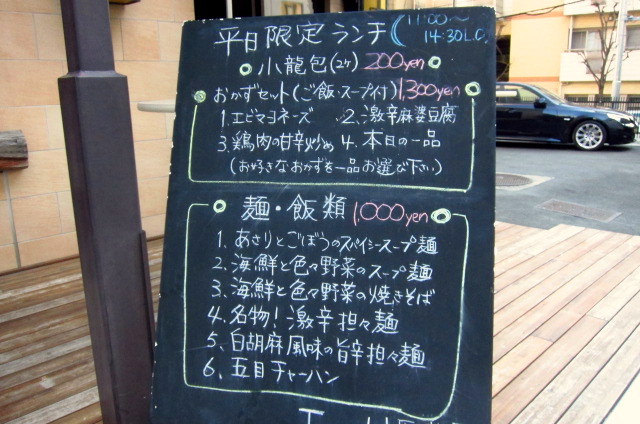 平日限定ランチ
11:00〜
14:30L.O.
小龍包(2ヶ) 200yen
おかずセット(ご飯・スープ付) 1,300yen
1. エビマヨネーズ 2. 激辛麻婆豆腐
3. 鶏肉の甘辛炒め 4. 本日の一品
(お好きなおかずを一品お選び下さい)
麺・飯類 1,000yen
1. あさりとごぼうのスパイシースープ麺
2. 海鮮と色々野菜のスープ麺
3. 海鮮と色々野菜の焼きそば
4. 名物!激辛担々麺
5. 白胡麻風味の旨辛担々麺
6. 五目チャーハン